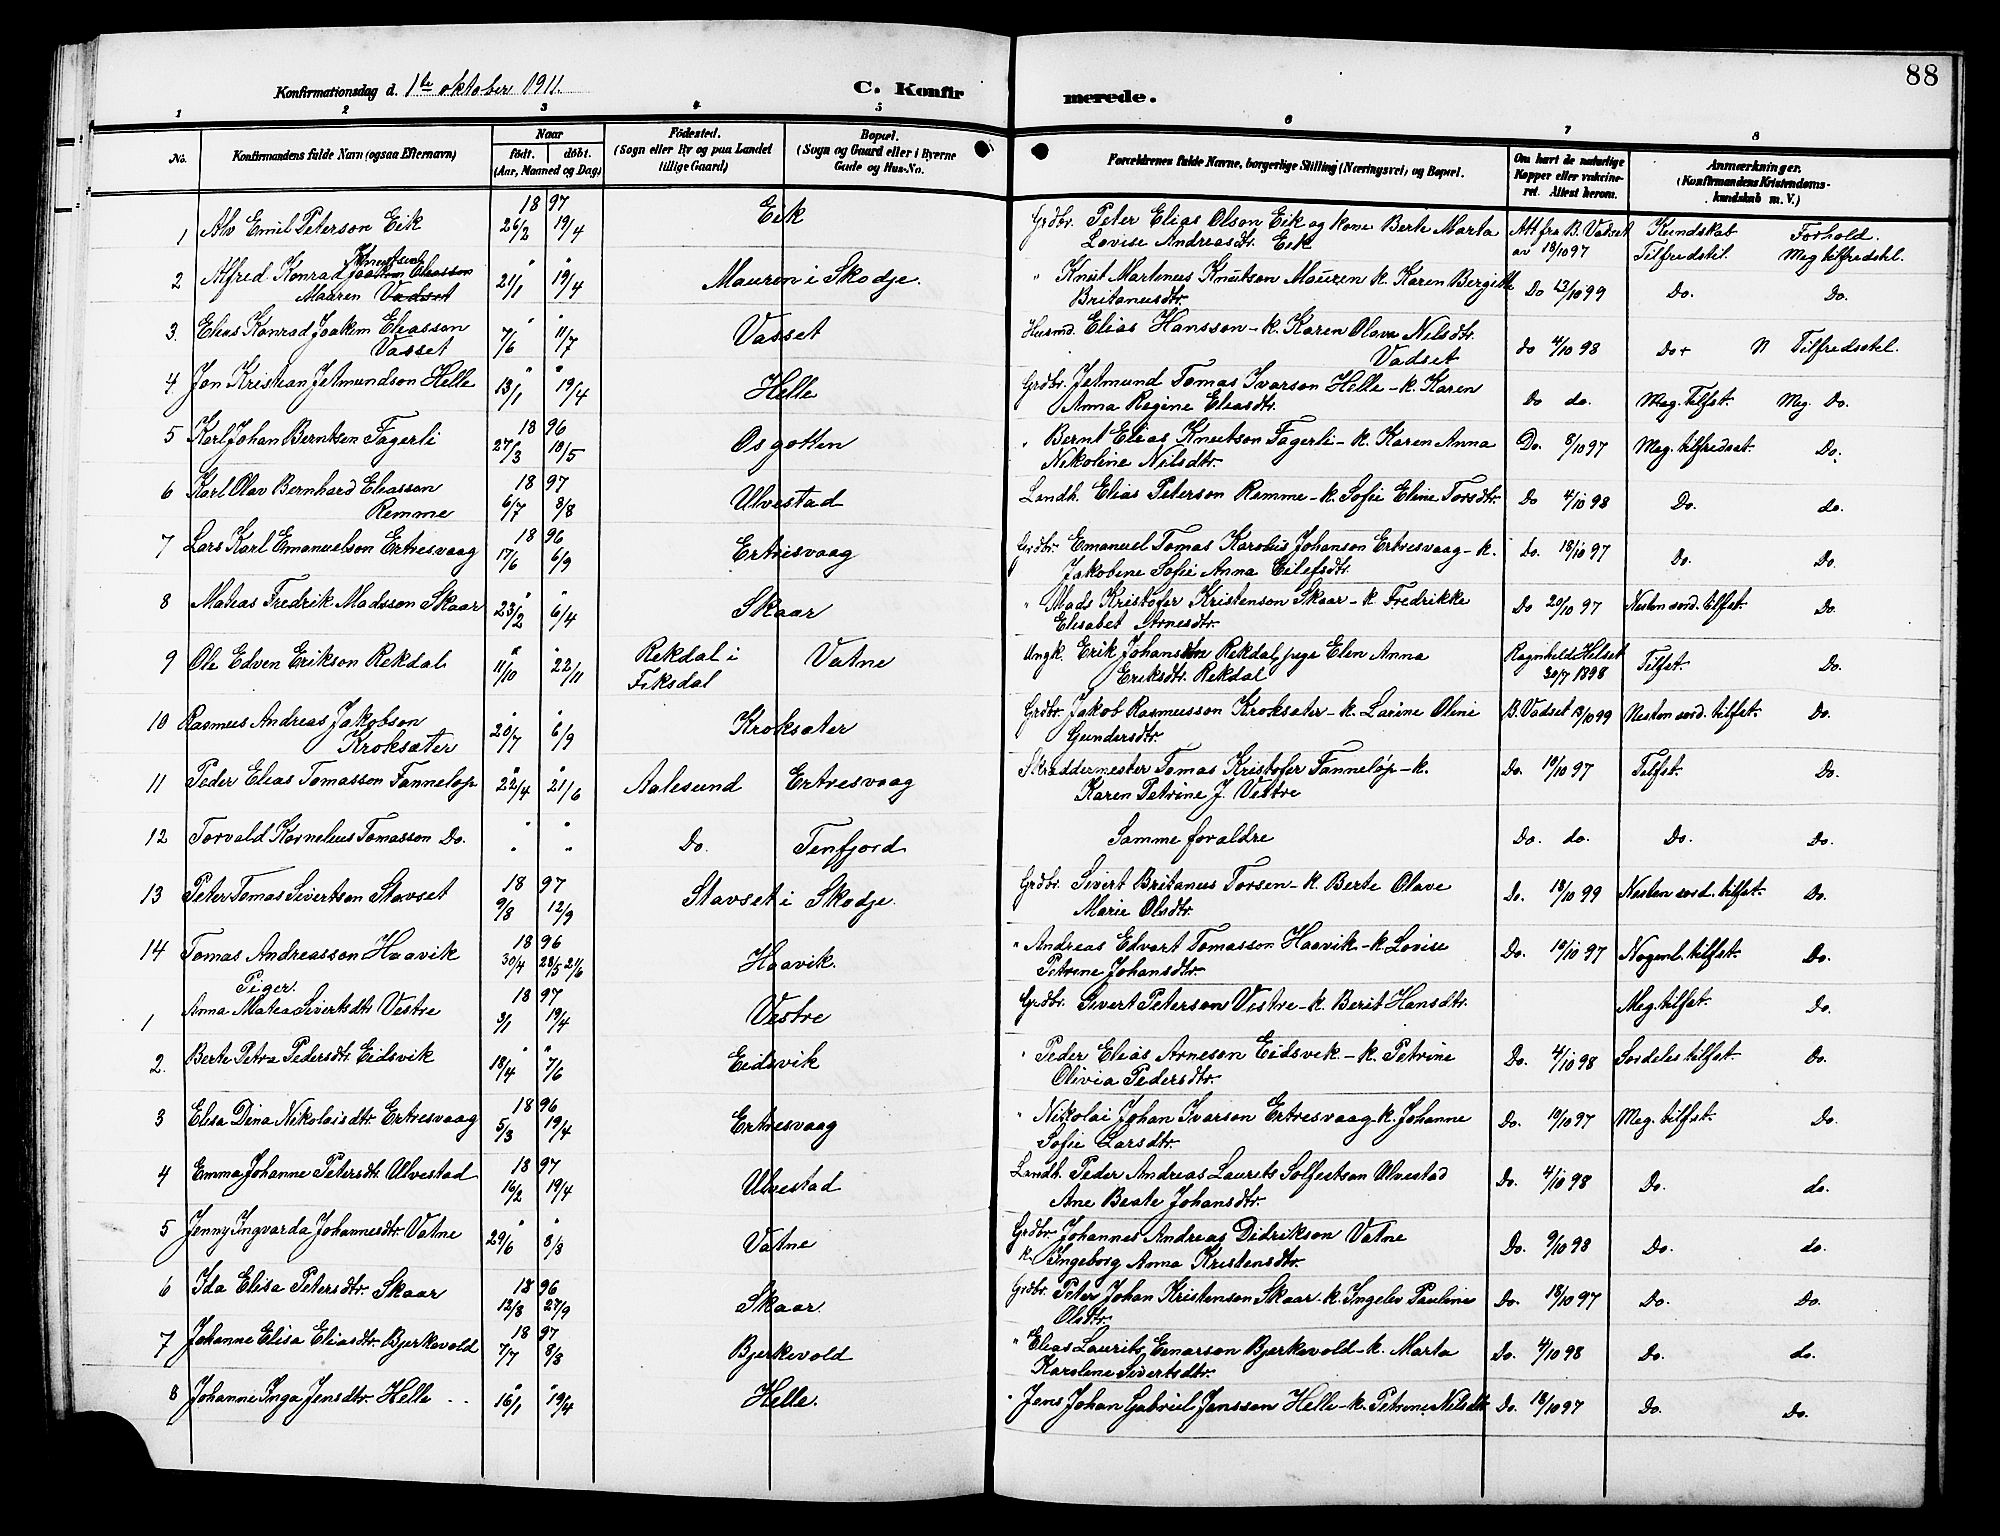 88
Konfirmationsdag d. 1ste oktober 1911.
C. Konfirmerede.
1 2 3 4 5 6 7 8
No.
Konfirmandens fulde Navn (ogsaa Efternavn)
Naar
født. døbt.
(Aar, Maaned og Dag)
Fødested.
(Sogn eller By og paa Landet
tillige Gaard)
Bopæl.
(Sogn og Gaard eller i Byerne
Gade og Hus-No.
Forældrenes fulde Navne, borgerlige Stilling (Næringsvei) og Bopæl.
Om havt de naturlige
Kopper eller vakcine-
ret. Attest herom.
Anmærkninger.
(Konfirmandens Kristendoms-
kundskab m. V.)
18 97
1 Alv Emil Peterson Eik 26/2 19/4 Eik Grdbr. Peter Elias Olson Eik og kone Berte Marta Att fra B. Vadset Kundskab Forhold.
Lovise Andreasdtr. Eik av 18/10 97 Tilfredstil. Meg tilfredstil.
2 Alfred Konrad Knutson Joakim Eleasson 21/1 19/4 Mauren i Skodje. " Knut Martinus Knutson Mauren k. Karen Bergitte Do 13/10 99 Do. Do.
Mauren Vadset Britanusdtr.
3. Elias Konrad Joakim Eleasson 7/6 11/7 Vasset Husmd. Elias Hansson - k. Karen Olava Nilsdtr. do 4/10 98 Do N Tilfredsstil.
Vasset Vadset
4 Jon Kristian Jetmundson Helle 13/1 19/4 Helle Grdbr. Jetmund Tomas Ivarson Helle - k. Karen Do do. Meg. tilfst. Meg. Do.
Anna Regine Eleasdtr.
18 96
5 Karl Johan Berntsen Fagerli 27/3 10/5 Osgotten " Bernt Elias Knutson Fagerli - k. Karen Anna Do. 8/10 97 Meg. tilfredsst. Do.
Nikoline Nilsdtr.
18 97
6 Karl Olav Bernhard Eleasson 6/7 8/8 Ulvestad Landh. Elias Peterson Remme - k. Sofie Eline Torsdtr. Do 4/10 98 Do. do.
Remme
18 96
7 Lars Karl Emanuelson Ertresvaag 17/6 6/9 Ertresvaag Grdbr. Emanuel Tomas Karolius Johanson Ertresvaag - k. Do. 18/10 97 Do. Do.
Jakobine Sofie Anna Eilefsdtr.
8 Mateas Fredrik Madsson Skaar 23/2 6/4 Skaar " Mads Kristofer Kristenson Skaar - k. Fredrikke Do 20/10 97 Nesten sord. tilfst. Do.
Elisabet Arnesdtr.
9 Ole Edven Erikson Rekdal 11/10 22/11 Rekdal i Vatne Ungk. Erik Johansen Rekdal, pige Elen Anna Ragnhild Helset Tilfst. Do.
Fiksdal Eriksdtr. Rekdal 30/7 1898
10 Rasmus Andreas Jakobson 20/7 6/9 Kroksæter Grdbr. Jakob Rasmusson Kroksæter - k. Larine Oline B. Vadset 13/10 99 Nesten sord. tilfst. Do.
Kroksæter Gundersdtr.
11 Peder Elias Tomasson Tanneløp 22/4 21/6 Aalesund Ertresvaag Skræddermester Tomas Kristofer Tanneløp - k. Do. 19/10 97 Tilfst. Do.
Karen Petrine J. Vestre
12 Torvald Kornelius Tomasson Do. " " Do. Tenfjord Samme forældre Do. do. Do. Do.
18 97
13 Peter Tomas Sivertson Stavset 9/8 12/9 Stavset i Skodje. Grdbr. Sivert Britanus Torsen - k. Berte Olave Do. 18/10 99 Nesten sord. tilfst. Do.
Marie Olsdtr.
18 96
14 Tomas Andreasson Haavik 30/4 28/5 21/6 Haavik. " Andreas Edvart Tomasson Haavik - k. Lovise Do. 19/10 97 Nogenl. tilfst. Do.
Petrine Johansdtr.
Piger.
18 97
1 Anna Matea Sivertsdtr. Vestre 3/1 19/4 Vestre Grdbr. Sivert Peterson Vestre - k. Berit Hansdtr. Meg. tilfst. Do.
2. Berte Petra Pedersdtr. Eidsvik 18/4 7/6 Eidsvik " Peder Elias Arneson Eidsvik - k. Petrine Do. 4/10 98 Sordeles tilfst. Do.
Olivia Pedersdtr.
18 96
3 Elisa Dina Nikolaisdtr. Ertresvaag 5/3 19/4 Ertresvaag " Nikolai Johan Ivarson Ertresvaag - k. Johanne Do. 19/10 97 Meg. tilfst. Do.
Sofie Larsdtr.
18 97
4 Emma Johanne Petersdtr. Ulvestad 16/2 19/4 Ulvestad Landh. Peder Andreas Laurits Solfestson Ulvestad Do. 4/10 98 Do. do.
Ane Beate Johansdtr.
5 Jenny Ingvarda Johannesdtr. Vatne 29/6 8/8 Vatne Grdbr. Johannes Andreas Didrikson Vatne Do. 9/10 98 Do. do.
k. Ingeborg Anna Kristensdtr.
18 96
6 Ida Elisa Petersdtr. Skaar 12/8 27/9 Skaar Grdbr. Peter Johan Kristenson Skaar - k. Ingelev Pauline Do. 18/10 97 Do. Do.
Olsdtr.
18 97
7 Johanne Elisa Eliasdtr. Bjerkevold 7/7 8/8 Bjerkevold " Elias Laurits Einarson Bjerkevold - k. Marta Do. 4/10 98 Do. do.
Karoline Sivertsdtr.
8 Johanne Inga Jensdtr. Helle 16/1 19/4 Helle. " Jens Johan Gabriel Jensson Helle - k. Petrine Nilsdtr. Do. 18/10 97 Do. Do.